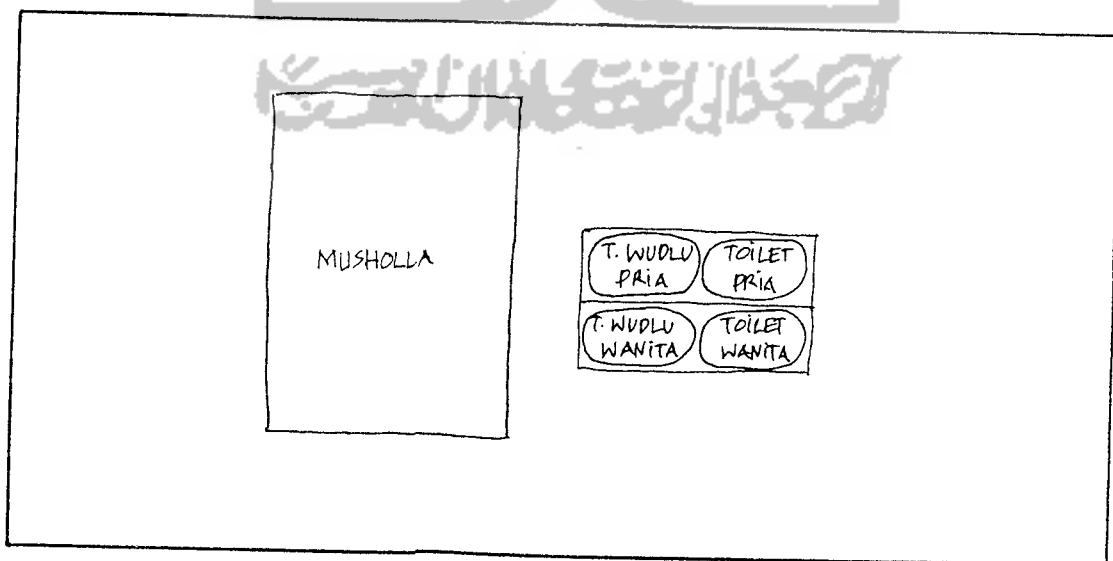 MUSHOLLA
T. WUDLU
PRIA
TOILET
PRIA
T. WUDLU
WANITA
TOILET
WANITA